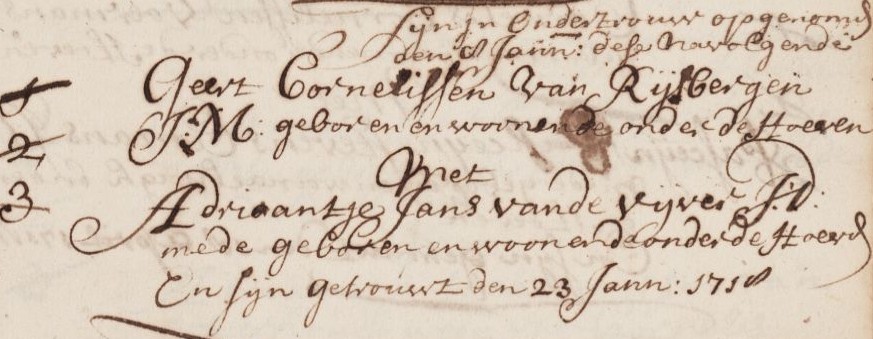 Sijn in Ondertrouw opgenomen
den 8 Jann: dese navolgende
1 Geert Cornelissen Van Rijsbergen
J:M: geboren en woonende onder de Hoeven
2 Met
3 Adriaantje Jans vande vijver J:D:
mede geboren en woonende onder de Hoeven
En sijn getrouwt den 23 Jann: 1718